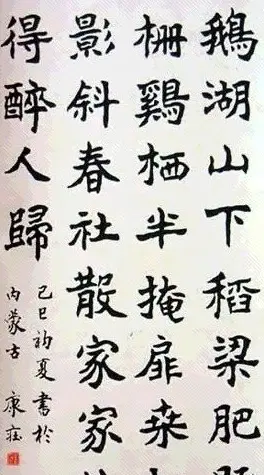 鵝湖山下稻梁肥
柵鷄栖半掩扉桑
影斜春社散家家
得醉人歸
己巳初夏書於
内蒙古 康